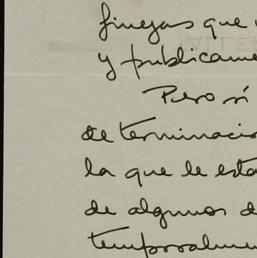 finezas que
y publicame
Pero si
determinacio
la que le esta
de algunos d
temporalmen